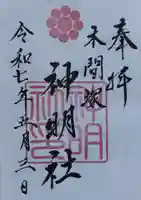 奉拝
木間塚
神明社
令和七年五月三日